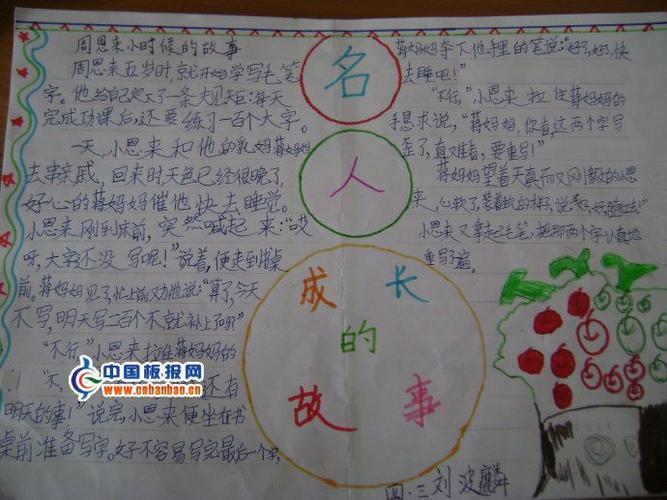 周恩来小时候的故事
周恩来五岁时,就开始学写毛笔
字。他给自己定下了一条大规矩:每天
完成功课后,还要练习一百个大字。
一天,小恩来和他的乳妈蒋妈妈
去串亲戚,回来时天色已经很晚了,
好心的蒋妈妈催他快去睡觉。
小恩来刚到床前,突然喊起来:“哎
呀,大字还没写呢!”说着,便走到书桌
前。蒋妈妈见了,忙上前劝他说:“算了,今天
不写,明天写二百个不就补上了吗?”
“不行”小恩来拉住蒋妈妈的
“不 还有
明天的事!”说完,小恩来便坐在书
桌前准备写字。好不容易写完最后一个字,
蒋妈妈夺下他手里的笔说:“好了,好了,快
去睡吧!”
“不行。”小恩来拉住蒋妈妈的
手恳求说,“蒋妈妈,你看,这两个字写
歪了,直又难看,要重写!”
蒋妈妈望着天真而又刚毅的小恩
来,心软了,装着 的样子,说:“
小恩来又拿起毛笔,把那两个字认真地
重写了遍。
名
人
成长
的
故事
中国板报网
www.cnbanbao.cn
四.三刘波麟